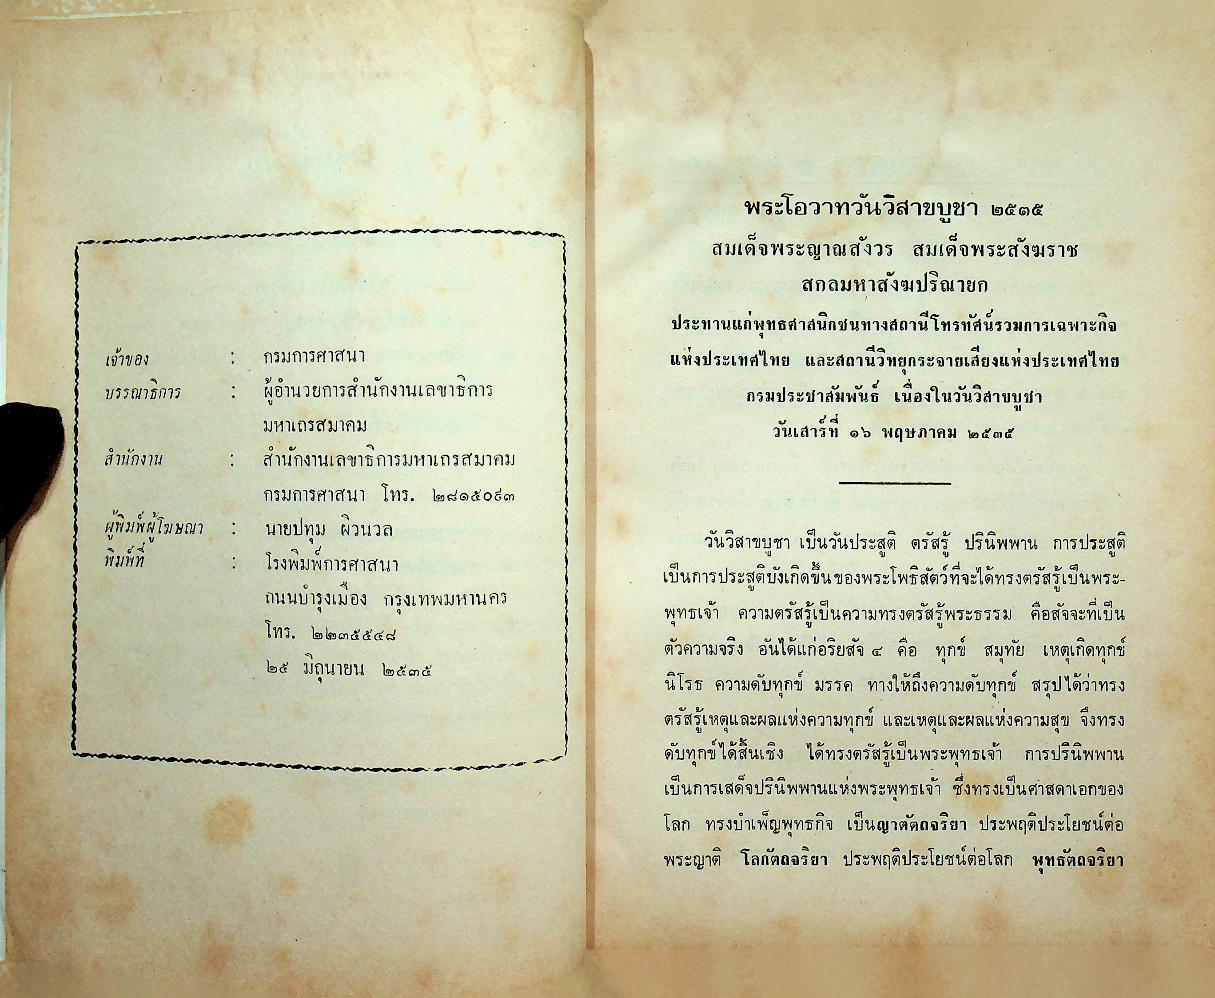 เจ้าของ : กรมการศาสนา
บรรณาธิการ : ผู้อำนวยการสำนักงานเลขาธิการ
มหาเถรสมาคม
สำนักงาน : สำนักงานเลขาธิการมหาเถรสมาคม
กรมการศาสนา โทร. ๒๘๑๕๐๙๓
ผู้พิมพ์ผู้โฆษณา : นายปทุม ผิวนวล
พิมพ์ที่ : โรงพิมพ์การศาสนา
ถนนบำรุงเมือง กรุงเทพมหานคร
โทร. ๒๒๓๕๕๔๘
๒๕ มิถุนายน ๒๕๓๕
พระโอวาทวันวิสาขบูชา ๒๕๓๕
สมเด็จพระญาณสังวร สมเด็จพระสังฆราช
สกลมหาสังฆปริณายก
ประทานแก่พุทธศาสนิกชนทางสถานีโทรทัศน์รวมการเฉพาะกิจ
แห่งประเทศไทย และสถานีวิทยุกระจายเสียงแห่งประเทศไทย
กรมประชาสัมพันธ์ เนื่องในวันวิสาขบูชา
วันเสาร์ที่ ๑๖ พฤษภาคม ๒๕๓๕
วันวิสาขบูชา เป็นวันประสูติ ตรัสรู้ ปรินิพพาน การประสูติ
เป็นการประสูติบังเกิดขึ้นของพระโพธิสัตว์ที่จะได้ทรงตรัสรู้เป็นพระ-
พุทธเจ้า ความตรัสรู้เป็นความทรงตรัสรู้พระธรรม คือสัจจะที่เป็น
ตัวความจริง อันได้แก่อริยสัจ ๔ คือ ทุกข์ สมุทัย เหตุเกิดทุกข์
นิโรธ ความดับทุกข์ มรรค ทางให้ถึงความดับทุกข์ สรุปได้ว่าทรง
ตรัสรู้เหตุและผลแห่งความทุกข์ และเหตุและผลแห่งความสุข จึงทรง
ดับทุกข์ได้สิ้นเชิง ได้ทรงตรัสรู้เป็นพระพุทธเจ้า การปรินิพพาน
เป็นการเสด็จปรินิพพานแห่งพระพุทธเจ้า ซึ่งทรงเป็นศาสดาเอกของ
โลก ทรงบำเพ็ญพุทธกิจ เป็นญาตัตถจริยา ประพฤติประโยชน์ต่อ
พระญาติ โลกัตถจริยา ประพฤติประโยชน์ต่อโลก พุทธัตถจริยา